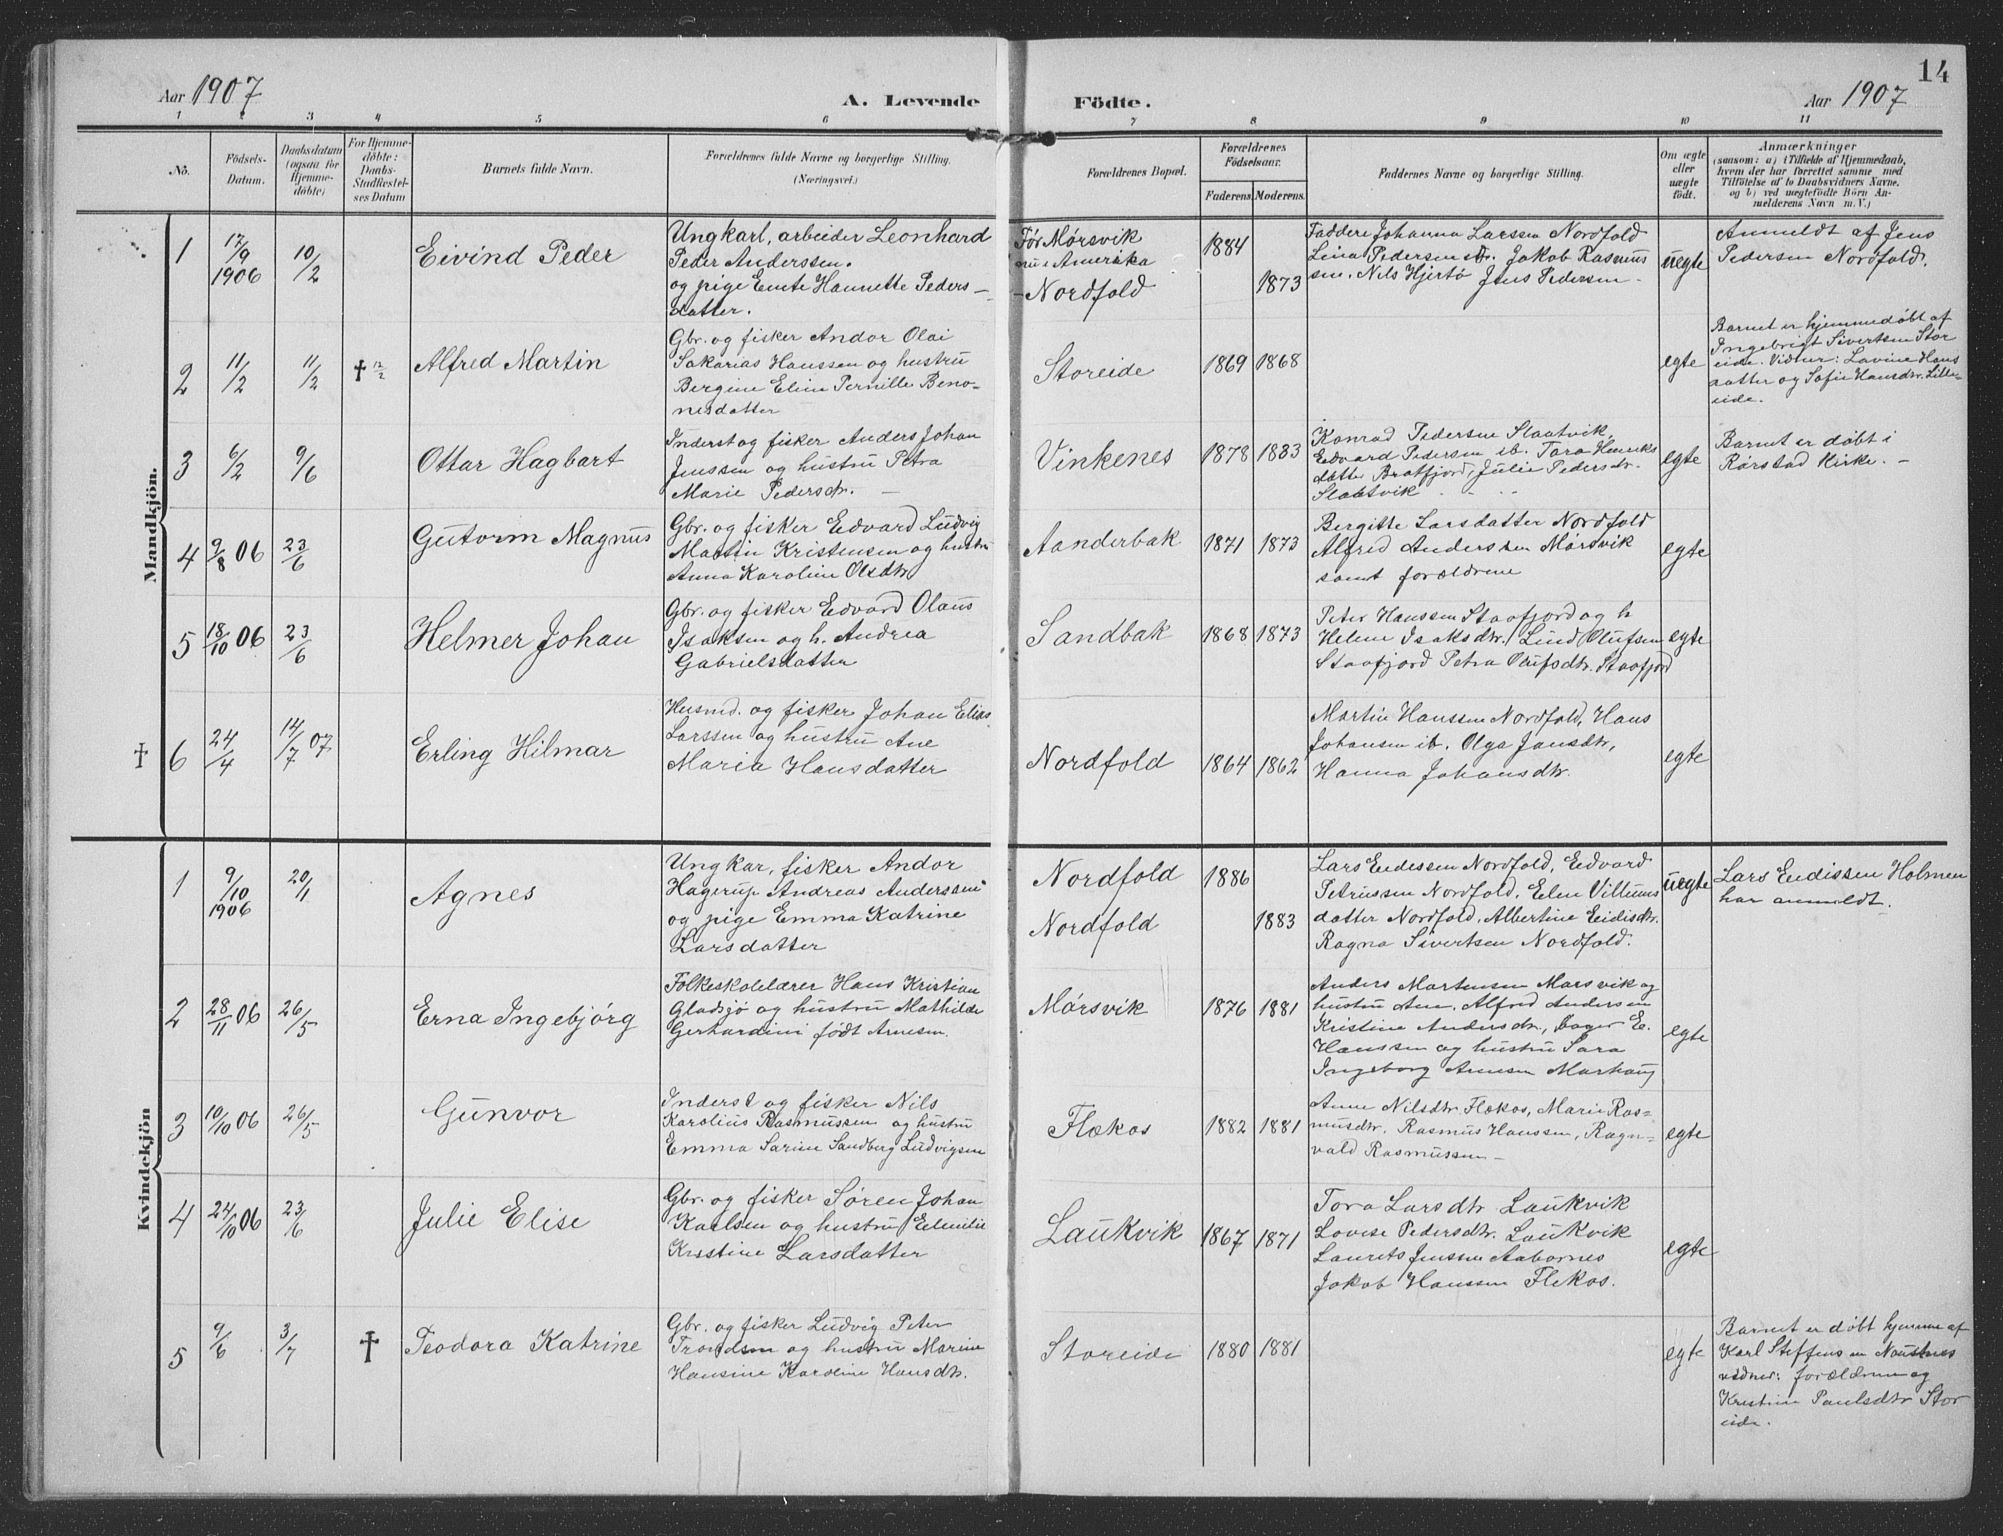 14
Aar 1907
A. Levende
Födte.
Aar 1907
1 2 3 4 5 6 7 8 9 10 11
No.
Födsels-
Datum.
Daabsdatum
(ogsaa for
Hjemme-
döbte)
For Hjemme-
döbte:
Daabs-
Stadfæstel-
ses Datum
Barnets fulde Navn.
Forældrenes fulde Navne og borgerlige Stilling.
(Næringsvei.)
Forældrenes Bopæl.
Forældrenes
Födselsaar.
Faderens Moderens
Faddernes Navne og borgerlige Stilling.
Om ægte
eller
uægte
födt.
Anmærkninger
(saasom: a) i Tilfælde af Hjemmedaab,
hvem der har forrettet samme med
Tilföielse af to Daabsvidners Navne.
og b) ved uægtefödte Börn An-
melderens Navn m. V.)
Mandkjön.
1
17/9
1906
10/2
Eivind Peder
Ungkarl, arbeider Leonhard
Peder Anderssen.
og pige Emte Hannette Peders-
datter.
Før Mørsvik
nu i Amerika
- Nordfold
1884
1873
Faddere Johanna Larssen Nordfold
Lina Pedersen str. Jakob Rasmus
sen. Nils Hjertø Jens Pedersen -
uegte
Anmeldt af Jens
Pedersen Nordfold.
2
11/2
11/2
† 12/2
Alfred Martin
Gbr. og fisker Andor Olai
Sakarias Hanssen og hustru
Bergine Elin Pernille Beno-
nisdatter
Storeide
1869 1868
egte
Barnet er hjemmedøbt af
Ingebrigt Sivertsen Stor
eide. Vidner: Lavine Hans
datter og Sofie Hansdtr. Lille-
eide.
3
6/2
9/6
Ottar Hagbart
Inderst og fisker Anders Johan
Jenssen og hustru Petra
Marie Pedersdtr. -
Vinkenes
1878 1883
Konrad Pedersen Slaatvik,
Edvard Pedersen ib. Tora Henriks
datter Bratfjord, Julie Pedersdtr.
Slaatvik
egte
Barnet er døbt i
Rørstad Kirke. -
4
9/8 06
23/6
Gutorm Magnus
Gbr. og fisker Edvard Ludvig
Martin Kristensen og hustru
Anna Karoline Olsdtr.
Aanderbak
1871 1873
Bergitte Larsdatter Nordfold
Alfred Anderssen Mørsvik
samt forældrene
egte
5
18/10 06
23/6
Helmer Johan
Gbr. og fisker Edvard Olaus
Isaksen og h. Andrea
Gabrielsdatter
Sandbak
1868 1873
Peter Hanssen Staafjord og h
Helene Isaksdtr. Lind Olufsen
Staafjord Petra Olufsdtr. Staafjord
egte
† 6
24/4
14/7 07
Erling Hilmar
Husmd. og fisker Johan Elias
Larssen og hustru Ane
Maria Hansdatter
Nordfold
1864 1862
Martin Hanssen Nordfold, Hans
Johansen ib. Olga Jansdtr,
Hanna Johansdtr.
egte
Kvindekjön
1
9/10
1906
20/1
Agnes
Ungkar, fisker Andor
Hagerup Andreas Anderssen
og pige Emma Katrine
Larsdatter
Nordfold
Nordfold
1886
1883
Lars Eidissen Nordfold, Edvard
Petrussen Nordfold, Elen Villums
datter Nordfold, Albertine Eidisdtr.
Ragna Sivertsen Nordfold.
uegte
Lars Eidissen Holmen
har anmeldt.
2
28/11 06
26/5
Erna Ingebjørg
Folkeskolelærer Hans Kristian
Gladsjø og hustru Mathilde
Gerhardini født Arnesen.
Mørsvik
1876 1881
Anders Martensen Mørsvik og
hustru Ane, Alfred Andersen
Kristine Andersdtr, Dager E.
Hanssen og hustru Sara
Ingeborg Arnesen Marhaug
egte
3
10/10 06
26/5
Gunvor
Inderst og fisker Nils
Karolius Rasmussen og hustru
Emma Sarine Sandberg Ludvigsen
Flækos
1882 1881
Anne Nilsdtr. Flækos, Marie Ras-
musdtr. Rasmus Hanssen, Ragn-
vald Rasmussen -
egte
4
24/10 06
23/6
Julie Elise
Gbr. og fisker Søren Johan
Karlsen og hustru Edmilie
Kristine Larsdatter
Laukvik
1867 1871
Tora Larsdtr Laukvik
Lovise Pedersdtr. Laukvik
Laurits Jenssen Aabornes
Jakob Hanssen Flekos.
egte
5
9/6
3/7
†
Teodora Katrine
Gbr. og fisker Ludvig Peter
Trondsen og hustru Marine
Hansine Karoline Hansdtr.
Storeide
1880 1881
egte
Barnet er døbt hjemme af
Karl Steffensen Naustnes
vidner: forældrene og
Kristine Paulsdtr Stor
eide.